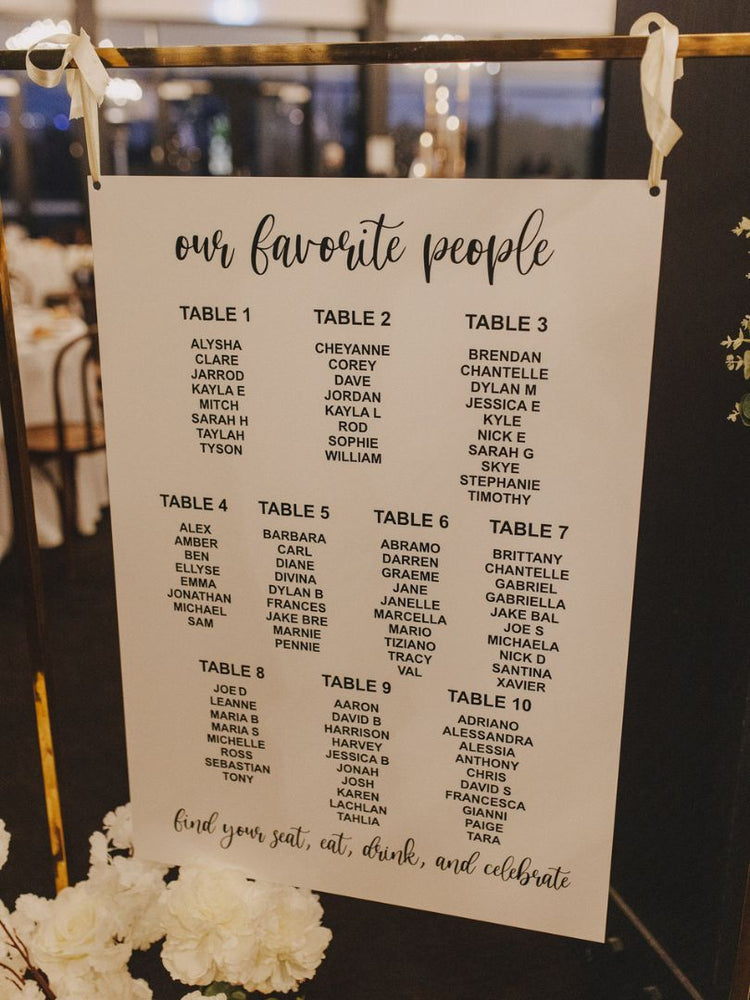 our favorite people
TABLE 1
ALYSHA
CLARE
JARROD
KAYLA E
MITCH
SARAH H
TAYLAH
TYSON
TABLE 2
CHEYANNE
COREY
DAVE
JORDAN
KAYLA L
ROD
SOPHIE
WILLIAM
TABLE 3
BRENDAN
CHANTELLE
DYLAN M
JESSICA E
KYLE
NICK E
SARAH G
SKYE
STEPHANIE
TIMOTHY
TABLE 4
ALEX
AMBER
BEN
ELLYSE
EMMA
JONATHAN
MICHAEL
SAM
TABLE 5
BARBARA
CARL
DIANE
DIVINA
DYLAN B
FRANCES
JAKE BRE
MARNIE
PENNIE
TABLE 6
ABRAMO
DARREN
GRAEME
JANE
JANELLE
MARCELLA
MARIO
TIZIANO
TRACY
VAL
TABLE 7
BRITTANY
CHANTELLE
GABRIEL
GABRIELLA
JAKE BAL
JOE S
MICHAELA
NICK D
SANTINA
XAVIER
TABLE 8
JOE D
LEANNE
MARIA B
MARIA S
MICHELLE
ROSS
SEBASTIAN
TONY
TABLE 9
AARON
DAVID B
HARRISON
HARVEY
JESSICA B
JONAH
JOSH
KAREN
LACHLAN
TAHLIA
TABLE 10
ADRIANO
ALESSANDRA
ALESSIA
ANTHONY
CHRIS
DAVID S
FRANCESCA
GIANNI
PAIGE
TARA
find your seat, eat, drink, and celebrate